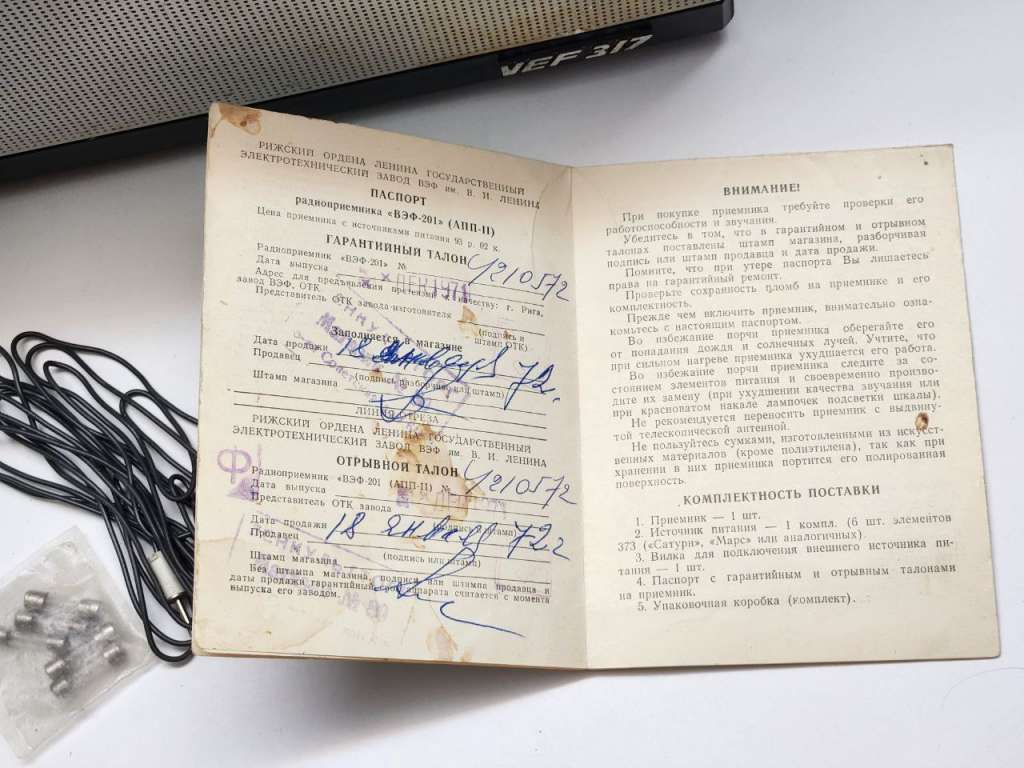 VEF 317
РИЖСКИЙ ОРДЕНА ЛЕНИНА ГОСУДАРСТВЕННЫЙ
ЭЛЕКТРОТЕХНИЧЕСКИЙ ЗАВОД ВЭФ им. В. И. ЛЕНИНА
ПАСПОРТ
радиоприемника «ВЭФ-201» (АПП-II)
Цена приемника с источниками питания 93 р. 02 к.
ГАРАНТИЙНЫЙ ТАЛОН
Радиоприемник «ВЭФ-201» № 210572
Дата выпуска ДЕК 1971
Адрес для предъявления претензий к качеству: г. Рига,
завод ВЭФ, ОТК
Представитель ОТК завода-изготовителя
(подпись и
штамп ОТК)
Заполняется в магазине
Дата продажи 18 января 72 г.
Продавец
(подпись разборчиво или штамп)
Штамп магазина
ЛИНИЯ ОТРЕЗА
РИЖСКИЙ ОРДЕНА ЛЕНИНА ГОСУДАРСТВЕННЫЙ
ЭЛЕКТРОТЕХНИЧЕСКИЙ ЗАВОД ВЭФ им. В. И. ЛЕНИНА
ОТРЫВНОЙ ТАЛОН
Радиоприемник «ВЭФ-201 (АПП-II) № 210572
Дата выпуска
Представитель ОТК завода
(подпись и штамп)
Дата продажи 18 янва 72 г
Продавец
(подпись или штамп)
Штамп магазина
Без штампа магазина, подписи или штампа продавца и
даты продажи гарантийный срок аппарата считается с момента
выпуска его заводом.
ВНИМАНИЕ!
При покупке приемника требуйте проверки его
работоспособности и звучания.
Убедитесь в том, что в гарантийном и отрывном
талонах поставлены штамп магазина, разборчивая
подпись или штамп продавца и дата продажи.
Помните, что при утере паспорта Вы лишаетесь
права на гарантийный ремонт.
Проверьте сохранность пломб на приемнике и его
комплектность.
Прежде чем включить приемник, внимательно озна-
комьтесь с настоящим паспортом.
Во избежание порчи приемника оберегайте его
от попадания дождя и солнечных лучей. Учтите, что
при сильном нагреве приемника ухудшается его работа.
Во избежание порчи приемника следите за со-
стоянием элементов питания и своевременно произво-
дите их замену (при ухудшении качества звучания или
при красноватом накале лампочек подсветки шкалы).
Не рекомендуется переносить приемник с выдвину-
той телескопической антенной.
Не пользуйтесь сумками, изготовленными из искусст-
венных материалов (кроме полиэтилена), так как при
хранении в них приемника портится его полированная
поверхность.
КОМПЛЕКТНОСТЬ ПОСТАВКИ
1. Приемник — 1 шт.
2. Источник питания — 1 компл. (6 шт. элементов
373 («Сатурн», «Марс» или аналогичных).
3. Вилка для подключения внешнего источника пи-
тания — 1 шт.
4. Паспорт с гарантийным и отрывным талонами
на приемник.
5. Упаковочная коробка (комплект).